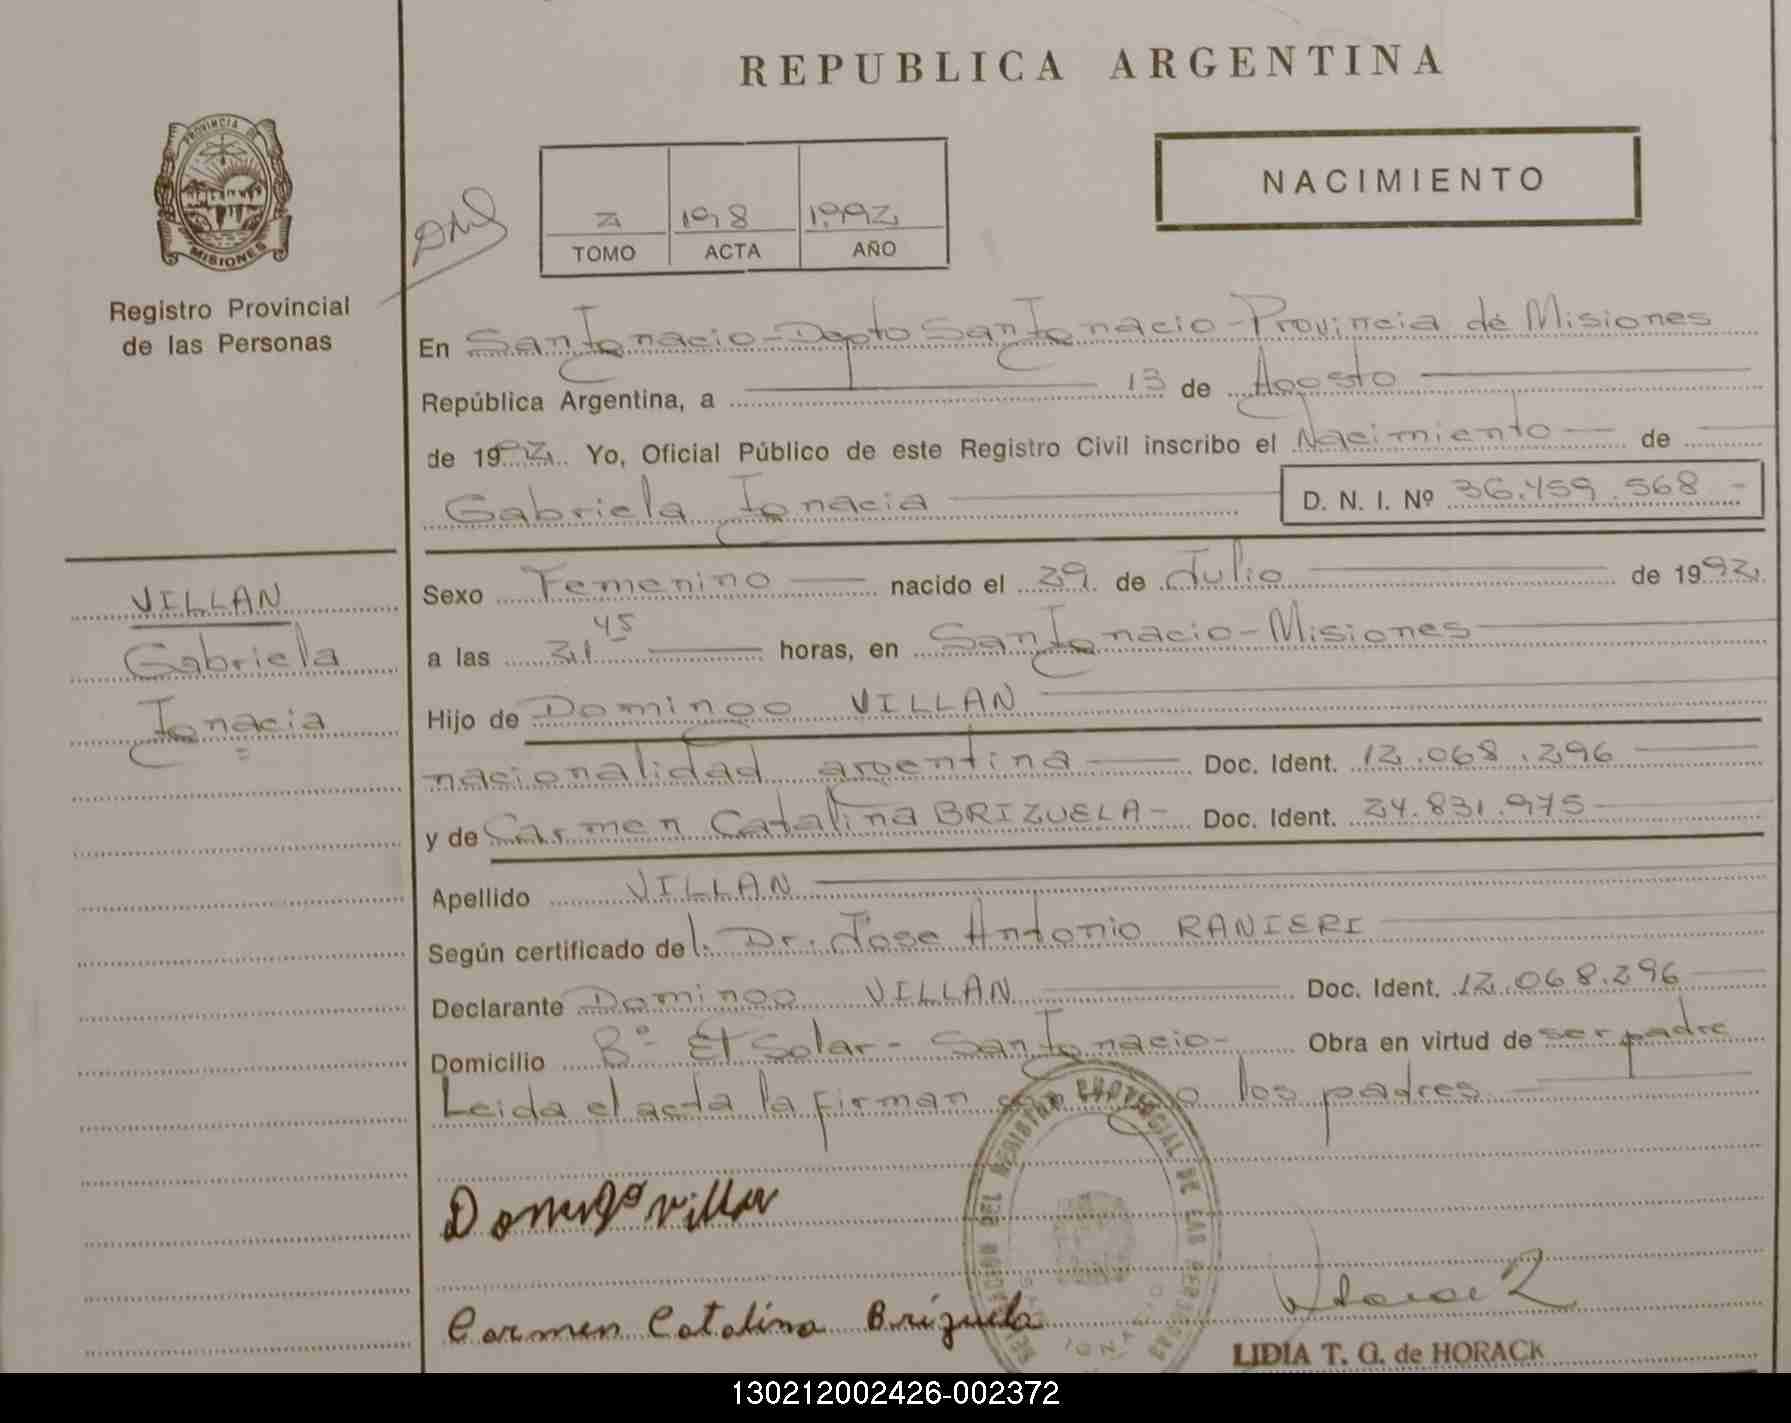 REPUBLICA ARGENTINA
PROVINCIA DE
MISIONES
Registro Provincial
de las Personas
NACIMIENTO
2 198 1992
TOMO ACTA AÑO
En San Ignacio - Depto San Ignacio - Provincia de Misiones
República Argentina, a 13 de Agosto
de 1992. Yo, Oficial Público de este Registro Civil inscribo el Nacimiento de
Gabriela Ignacia
D. N. I. Nº 36.459.568 -
VILLAN
Gabriela
Ignacia
Sexo Femenino nacido el 29 de Julio de 1992
a las 21 45 horas, en San Ignacio - Misiones
Hijo de Domingo VILLAN
nacionalidad argentina Doc. Ident. 12.068.296
y de Carmen Catalina BRIZUELA - Doc. Ident. 24.831.975
Apellido VILLAN
Según certificado del Dr. Jose Antonio RANIERI
Declarante Domingo VILLAN Doc. Ident. 12.068.296
Domicilio Bº El Solar - San Ignacio - Obra en virtud de ser padre
Leida el acta la firman conmigo los padres
REGISTRO PROVINCIAL DE LAS PERSONAS
Domingo Villan
Carmen Catalina Brizuela
LIDIA T. G. de HORACK
130212002426-002372